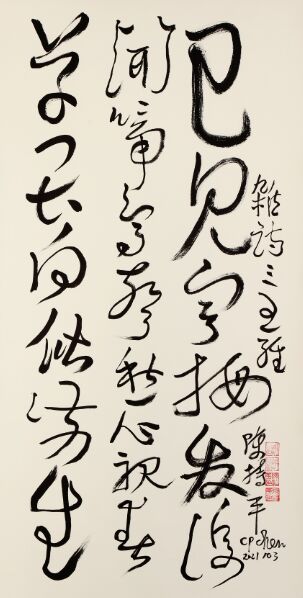 已見寒梅發復
聞啼鳥聲愁心視春
草畏向階前生
雜詩三王維
陳平
CP Chen
2021 10 3